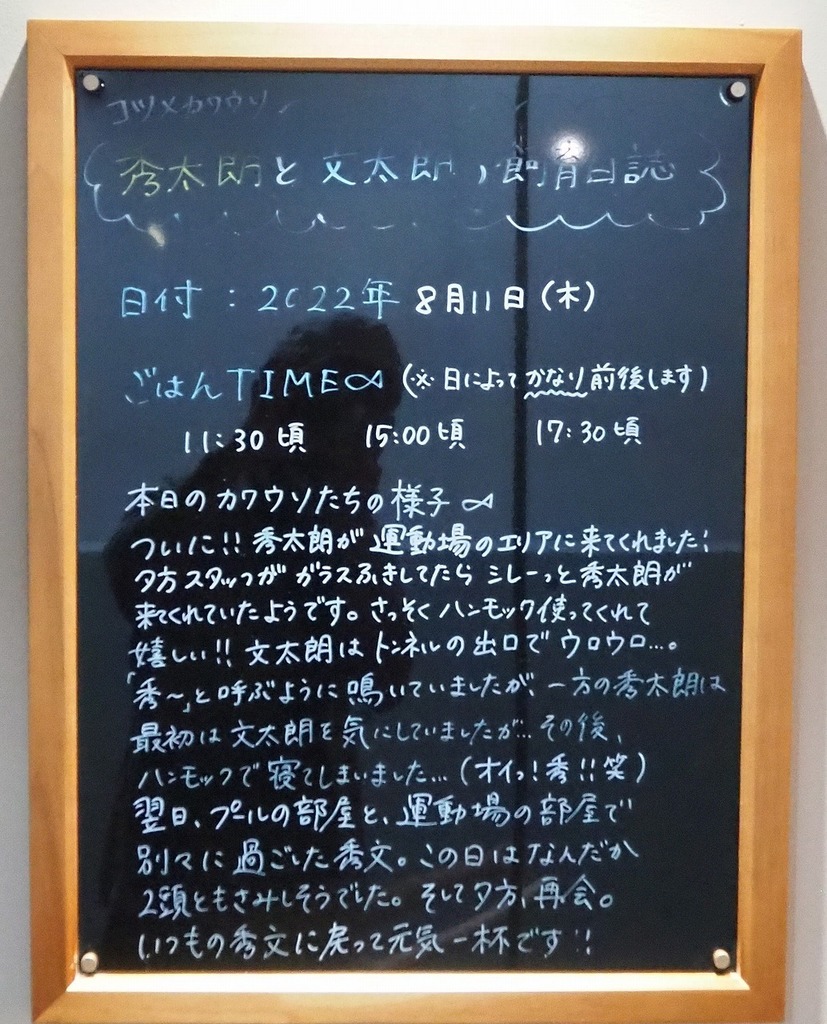 コツメカワウソ
秀太朗と文太朗、飼育日誌
日付：2022年 8月11日（木）
ごはんTIME∞（※日によってかなり前後します）
11:30頃 15:00頃 17:30頃
本日のカワウソたちの様子∞
ついに!! 秀太朗が運動場のエリアに来てくれました!
夕方スタッフがガラスふきしてたらシレーっと秀太朗が
来てくれていたようです。さっそくハンモック使ってくれて
嬉しい!! 文太朗はトンネルの出口でウロウロ…。
「秀～」と呼ぶように鳴いていましたが、一方の秀太朗は
最初は文太朗を気にしていましたが…その後、
ハンモックで寝てしまいました…（オイっ!秀!!笑）
翌日、プールの部屋と、運動場の部屋で
別々に過ごした秀文。この日はなんだか
2頭ともさみしそうでした。そして夕方、再会。
いつもの秀文に戻って元気一杯です!!